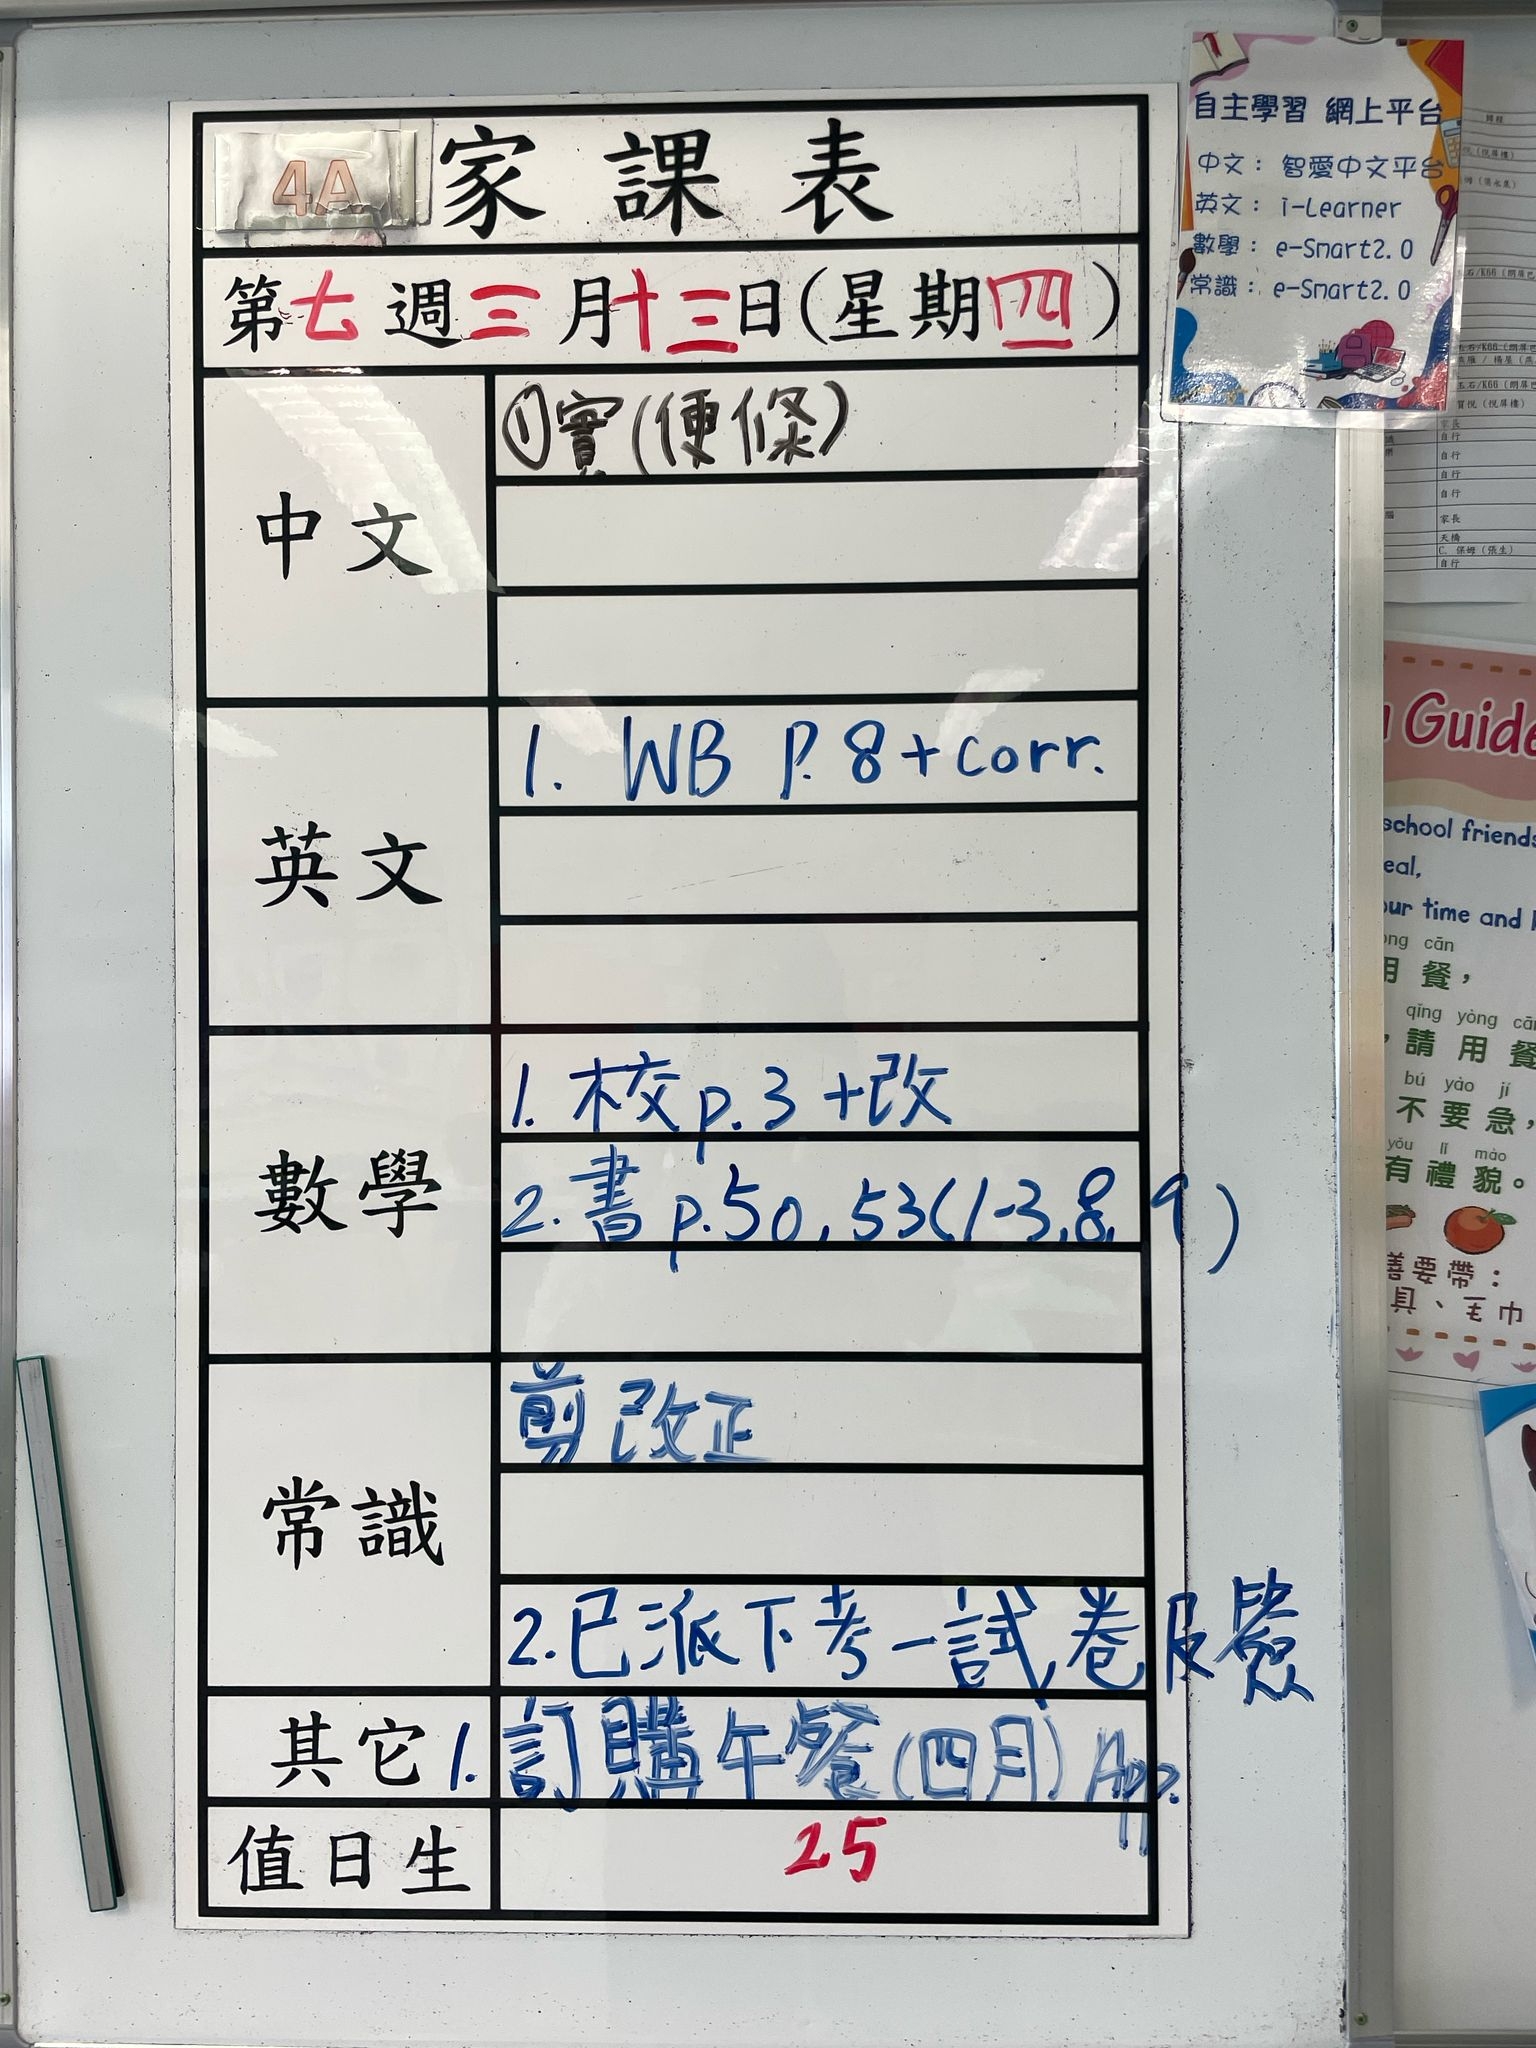 4A 家課表
第七週三月十三日(星期四)
中文
①實(便條)
英文
1. WB P.8+corr.
數學
1. 校p.3+改
2. 書p.50,53(1-3,8,9)
常識
剪改正
2.已派下考一試卷及
其它
1.訂購午餐(四月)App.
值日生
25
自主學習 網上平台
中文: 智愛中文平台
英文: i-Learner
數學: e-Smart2.0
常識: e-Smart2.0
家長
自行
自行
自行
自行
家長
天橋
C. 保姆(張生)
自行
Guide
school friends
eal,
our time and
ong cān
用餐,
qǐng yòng cā
,請用餐
bú yào jí
不要急,
yǒu lǐ mào
有禮貌。
善要帶:
具、毛巾